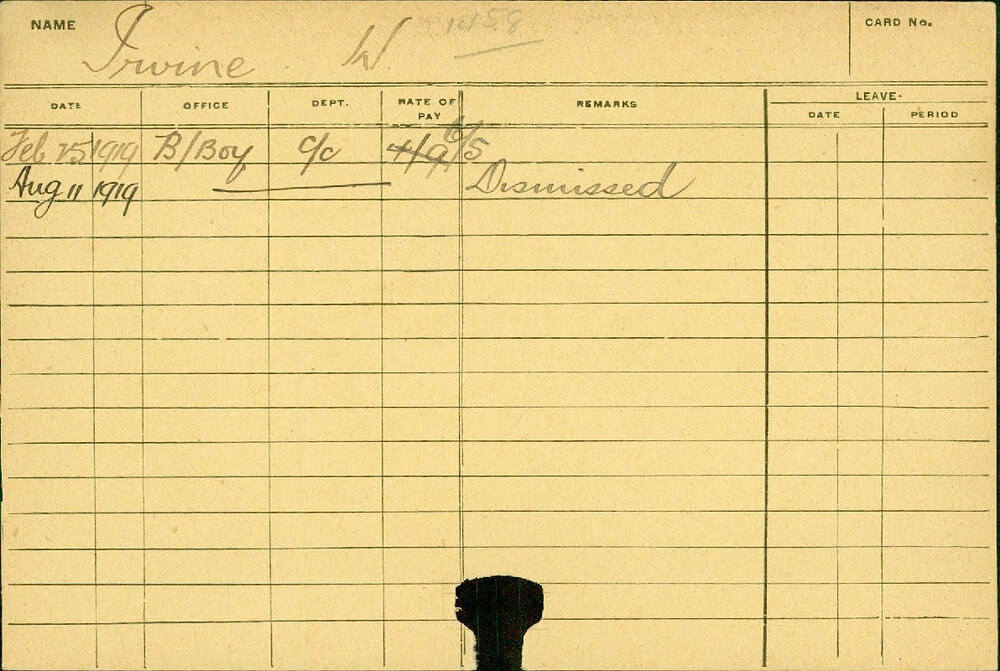 NAME Irvine W. 1458 CARD No.
DATE OFFICE DEPT. RATE OF PAY REMARKS LEAVE.
DATE PERIOD
Feb 25 1919 B/Boy C/c 4/9 6/5
Aug 11 1919 Dismissed